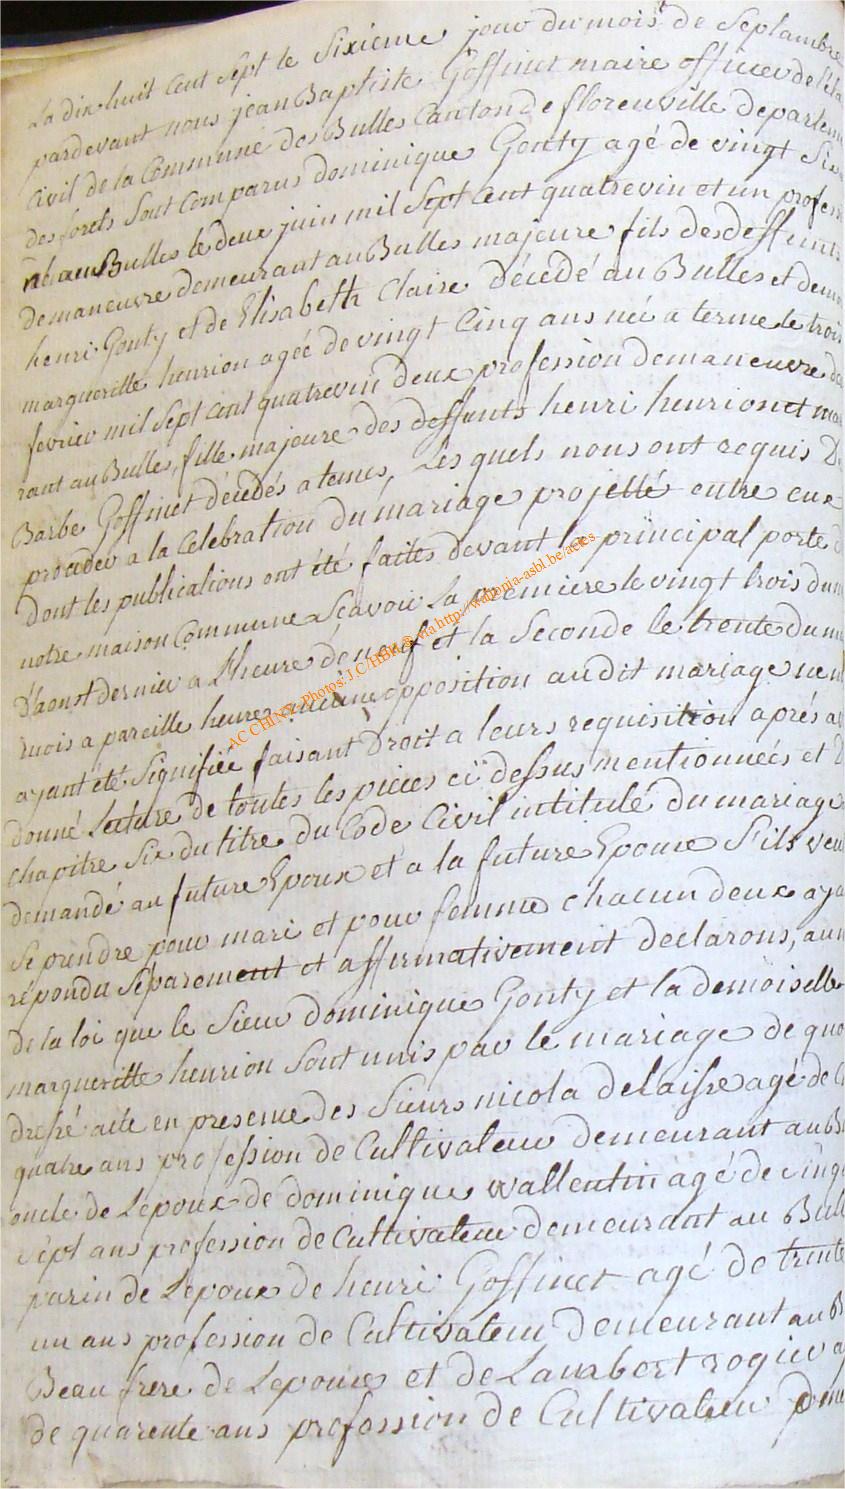 La dix huit Cent Sept le Sixieme jour du mois de Septambre
pardevant nous jean Baptiste Goffinet maire officier de l'éta
Civil de la Commune des Bulles Canton de florenville departem
des forets Sont Comparus dominique Gonty agé de vingt Six
né au Bulles le deux juin mil Sept Cent quatrevin et un profess
demaneuvre demeurant au Bulles majeure fils des deffunts
henri Gonty et de Elisabeth Claire décedé au Bulles et demoi
marguerille henrion agée de vingt Cinq ans née a terme le trois
fevrier mil Sept Cent quatrevin deux profession demaneuvre deu
rant au Bulles, fille majeure des deffunts henri henrion et mar
Barbe Goffinet décedés a temes, Les quels nous ont requis De
proceder a la Celebration du mariage projetté entre eux
dont les publications ont été faites devant la principal porte d
notre maison Commune Scavoir La premiere le vingt trois du m
D'aoust dernier a L'heure de neuf et la Seconde le trente du m
mois a pareille heure aucune opposition au dit mariage ne n
ayant été Signifiée faisant Droit a leurs requisition aprés a
donné Lecture de toutes les pieces ci dessus mentionneés et D
chapitre Six du titre du Code Civil intitulé du mariage
demandé au future Epoux et a la future Epouse S'ils veu
Se prendre pour mari et pour femme chacun deux aya
répondu Séparement et affirmativement declarons, au n
de la loi que le Sieur dominique Gonty et la demoiselle
margueritte henrion Sont unis par le mariage de quo
dressé acte en presence des Sieurs nicola delaisse agé de
quatre ans profession de Cultivateur demeurant au B
oncle de Lepoux de dominique wallentin agé de Cinq
Sept ans profession de Cultivateur demeurant au Bull
parin de Lepoux de henri Goffinet agé de trente
un ans profession de Cultivateur demeurant au B
Beau frere de Lepouse et de Lambert rogier a
de quarente ans profession de Cultivateur deme
ACCHINY - Photos:J.C/HBH@ via http://wallonia-asbl.be/actes